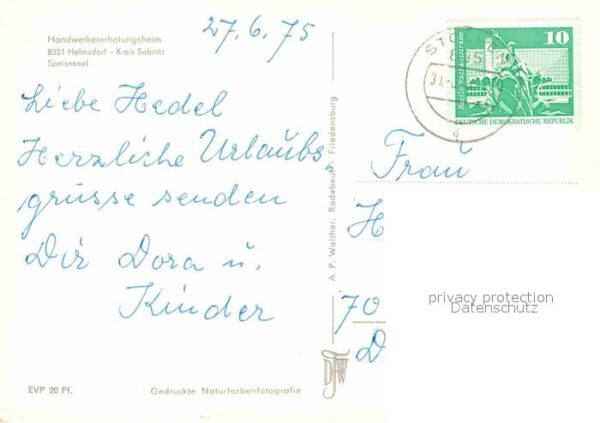 Handwerkererholungsheim
8351 Helmsdorf - Kreis Sebnitz
Speisesaal
27.6.75
Liebe Hedel
Herzliche Urlaubs-
grüsse senden
Dir Dora u.
Kinder
EVP 20 Pf.
Gedruckte Naturfarbenfotografie
A. P. Walther, Radebeul 1, Friedensburg
10
Berlin Rathausstraße
DEUTSCHE DEMOKRATISCHE REPUBLIK
Frau
H
70
D
privacy protection
Datenschutz